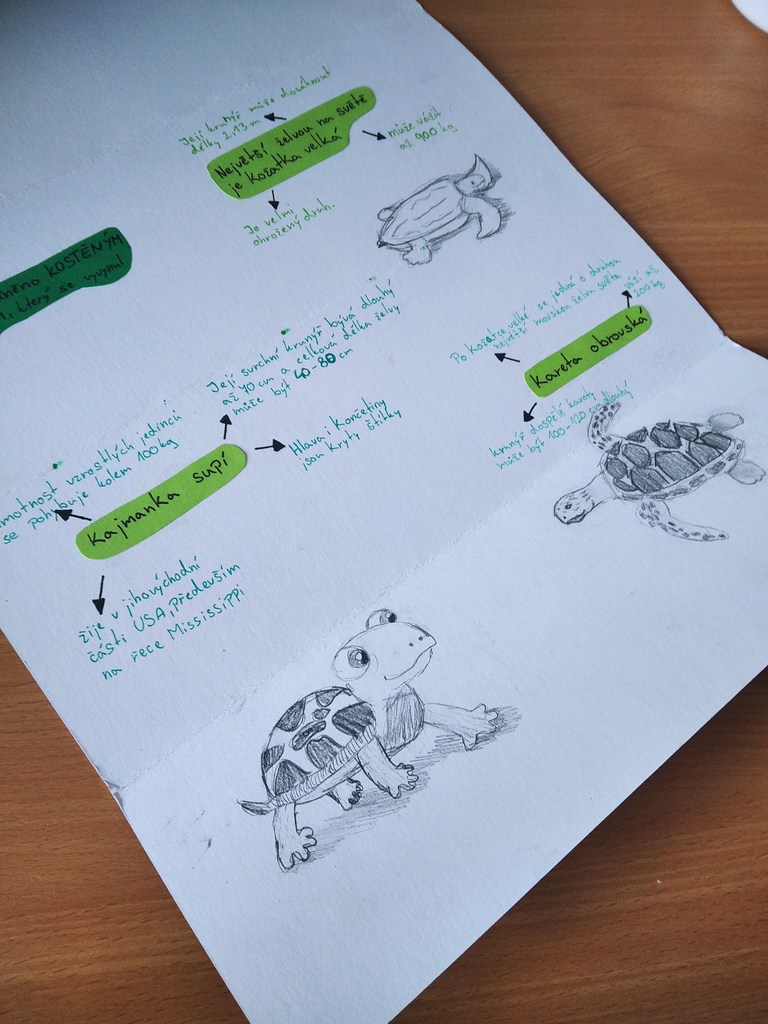 Její krunýř může dosáhnout
délky 2.13 m
Největší želvou na světě
je Kožatka velká
může vážit
až 900 kg
Je velmi
ohrožený druh.
KOSTĚNÝM
který se vyvynul
Po kožatce velké se jedná o druhou
největší mořskou želvu světa
váží až
200 kg
Kareta obrovská
krunýř dospělé karety
může být 100-120 cm dlouhý
Její svrchní krunýř bývá dlouhý
až 40 cm a celková délka želvy
může být 40-80 cm
motnost vzrostlých jedinců
se pohybuje kolem 100 kg
Kajmanka supí
Hlava i Končetiny
jsou kryty štítky
žije v jihovýchodní
části USA, především
na řece Mississippi